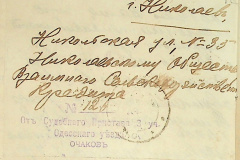 г. Николаев
Никольская ул. № 35
Николаевскому Обществу
Взаимного Сельскохозяйствен
Кредита
№ 126
От Судебного Пристава
Одесского
ОЧАКОВЪ